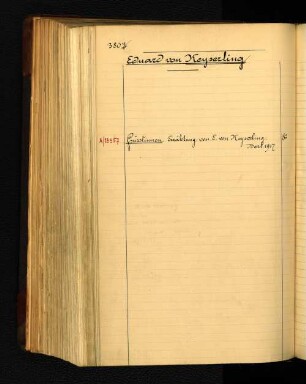 3807
Eduard von Keyserling
Fürstinnen. Erzählung von E. von Keyserling.
Berl. 1917
8°